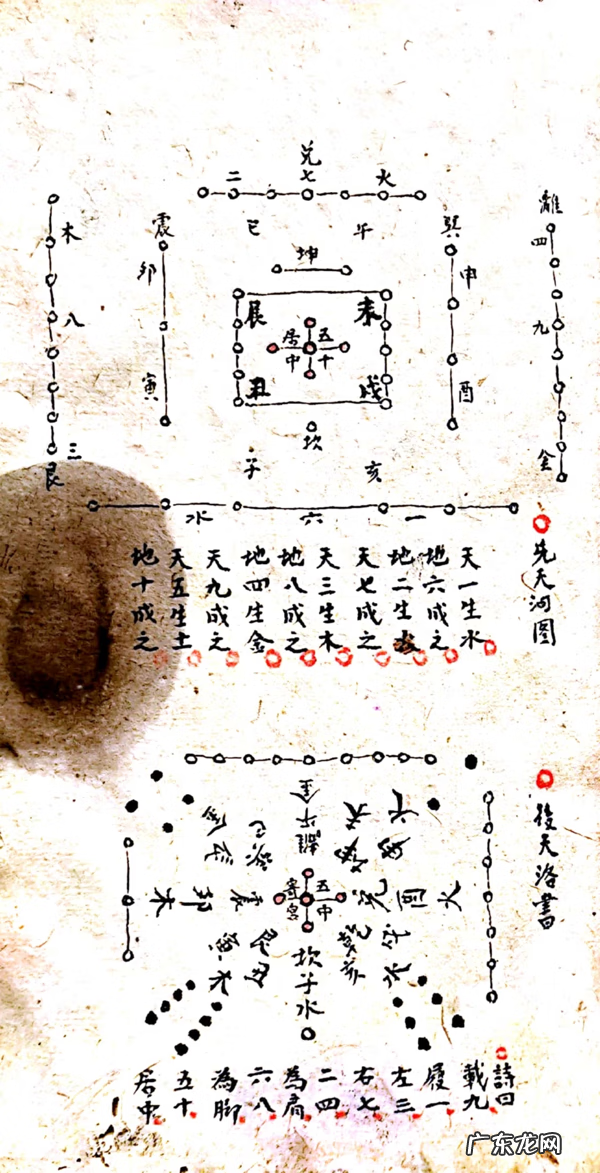 先天河圖
兌七
二
火
離
四
九
金
巽
申
酉
午
巳
坤
未
辰
五十
居中
戌
丑
坎
亥
子
震
卯
寅
木
八
三
艮
一
六
水
天一生水
地六成之
地二生火
天七成之
天三生木
地八成之
地四生金
天九成之
天五生土
地十成之
後天洛書
離
五中
寄宮
震
卯
木
兌
酉
坎子水
詩曰
載九
履一
左三
右七
二四
為肩
六八
為脚
五十
居中
广东龙网